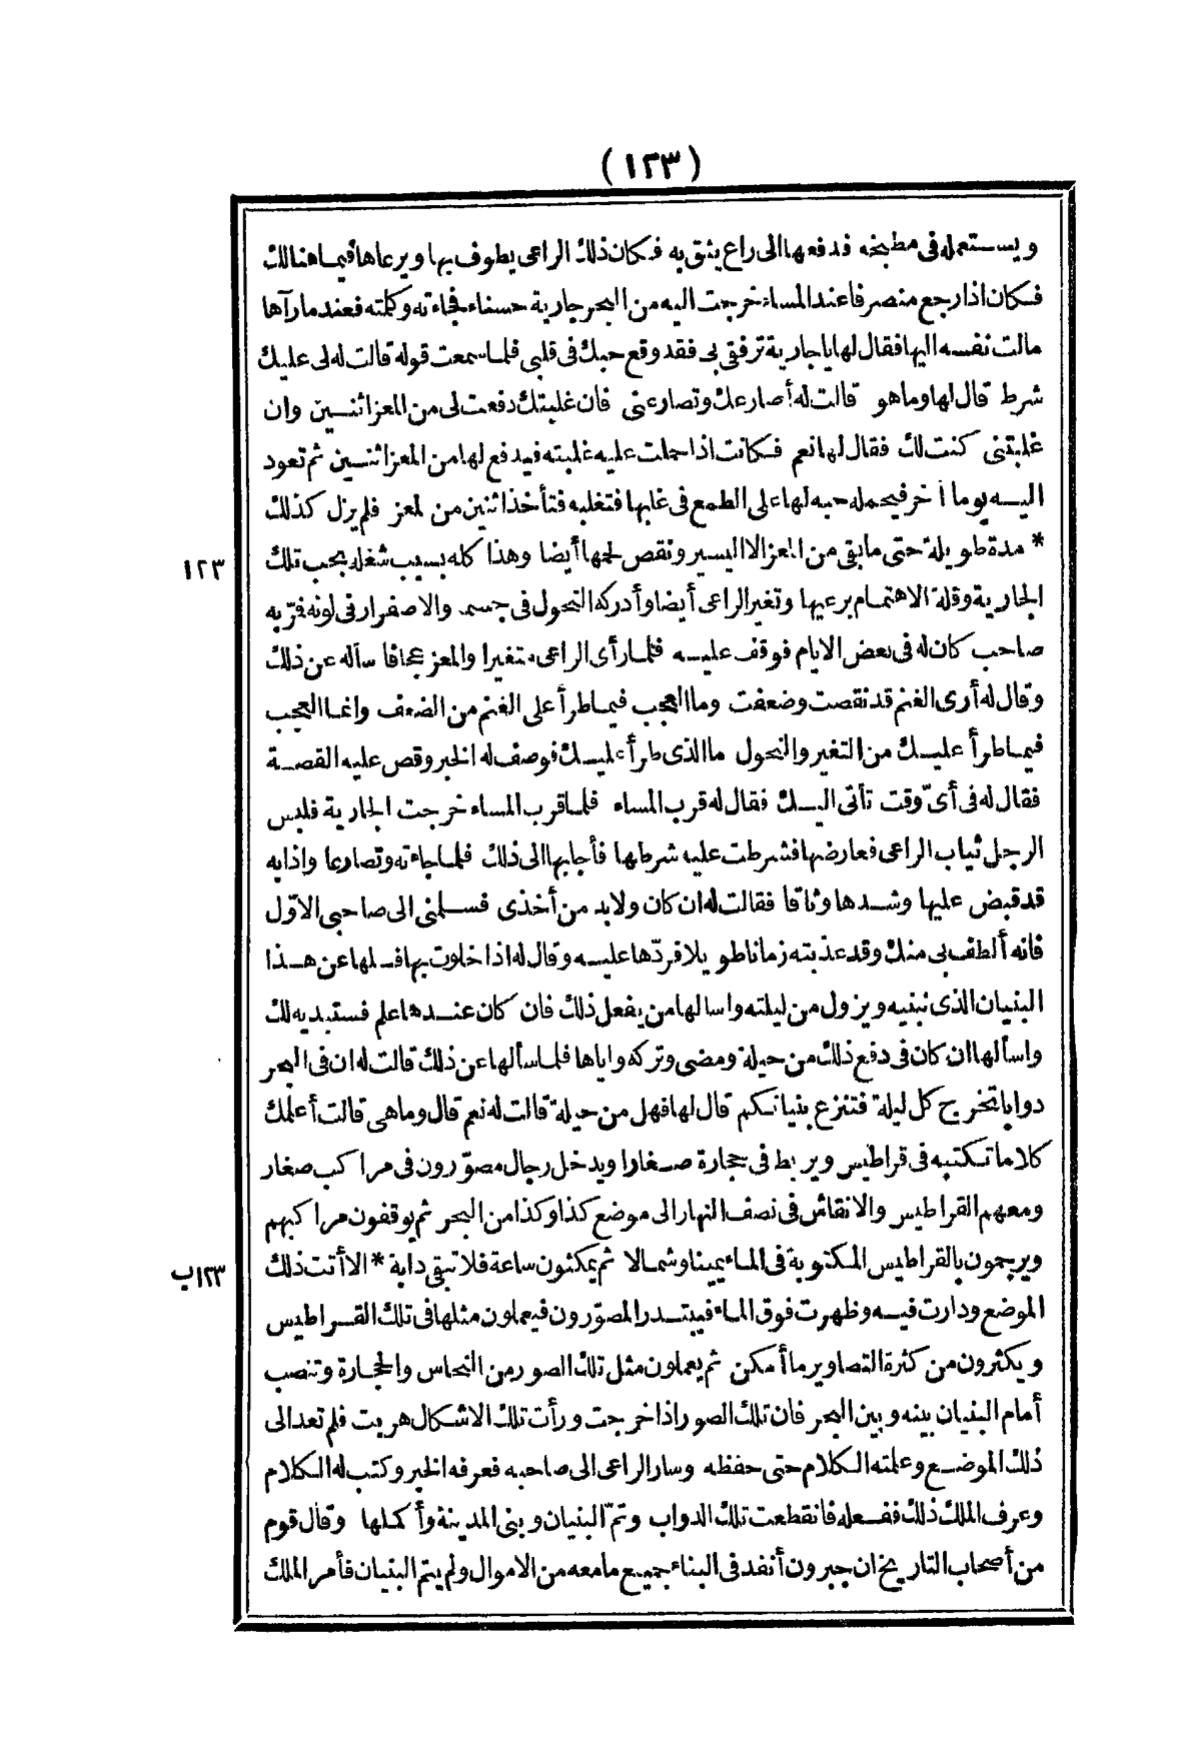 (١٢٣)
ويستعمله فى مطبخه فدفعها الى راع يثق به فكان ذلك الراعى يطوف بها ويرعاها فيما هنالك
فكان اذا رجع منصرفا عند المساء خرجت اليه من البحر جارية حسناء فجاءته وكلمته فعند ما رآها
مالت نفسه اليها فقال لها يا جارية ترفقى بى فقد وقع حبك فى قلبى فلما سمعت قوله قالت له لى عليك
شرط قال لها وما هو قالت له أصارعك وتصارعنى فان غلبتك دفعت لى من المعز اثنين وان
غلبتنى كنت لك فقال لها نعم فكانت اذا حملت عليه غلبته فيدفع لها من المعز اثنين ثم تعود
اليه يوما آخر فيحمله حبه لها على الطمع فى غلبها فتغلبه فتأخذ اثنين من المعز فلم يزل كذلك
* مدة طويلة حتى ما بقى من المعز الا اليسير ونقص لحمها أيضا وهذا كله بسبب شغله بحب تلك
١٢٣
الجارية وقلة الاهتمام برعيها وتغير الراعى أيضا وأدركه النحول فى جسمه والاصفرار فى لونه فمرّ به
صاحب كان له فى بعض الايام فوقف عليه فلما رأى الراعى متغيرا والمعز عجافا سأله عن ذلك
وقال له أرى الغنم قد نقصت وضعفت وما العجب فيما طرأ على الغنم من الضعف وانما العجب
فيما طرأ عليك من التغير والنحول ما الذى طرأ عليك فوصف له الخبر وقص عليه القصة
فقال له فى أىّ وقت تأتى اليك فقال له قرب المساء فلما قرب المساء خرجت الجارية فلبس
الرجل ثياب الراعى فعارضها فشرطت عليه شرطها فأجابها الى ذلك فلما جاءته وتصارعا واذا به
قد قبض عليها وشدها وثاقا فقالت له ان كان ولا بد من أخذى فسلمنى الى صاحبى الاوّل
فانه ألطف بى منك وقد عذبته زمانا طويلا فردّها عليه وقال له اذا خلوت بها فسلها عن هذا
البنيان الذى نبنيه ويزول من ليلته واسالها من يفعل ذلك فان كان عندها علم فستبديه لك
واسألها ان كان فى دفع ذلك من حيلة ومضى وتركه واياها فلما سألها عن ذلك قالت له ان فى البحر
دوابا تخرج كل ليلة فتنزع بنيانكم قال لها فهل من حيلة قالت له نعم قال وما هى قالت أعلمك
كلاما تكتبه فى قراطيس ويربط فى حجارة صغارا ويدخل رجال مصوّرون فى مراكب صغار
ومعهم القراطيس والانقاش فى نصف النهار الى موضع كذا وكذا من البحر ثم يوقفون مراكبهم
ويرجمون بالقراطيس المكتوبة فى الماء يمينا وشمالا ثم يمكثون ساعة فلا تبقى دابة * الا أتت ذلك
١٢٣ب
الموضع ودارت فيه وظهرت فوق الماء فيبتدر المصوّرون فيعملون مثلها فى تلك القراطيس
ويكثرون من كثرة التصاوير ما أمكن ثم يعملون مثل تلك الصور من النحاس والحجارة وتنصب
أمام البنيان بينه وبين البحر فان تلك الصور اذا خرجت ورأت تلك الاشكال هربت فلم تعد الى
ذلك الموضع وعلمته الكلام حتى حفظه وسار الراعى الى صاحبه فعرفه الخبر وكتب له الكلام
وعرف الملك ذلك ففعله فانقطعت تلك الدواب وتمّ البنيان وبنى المدينة وأكملها وقال قوم
من أصحاب التاريخ ان جبرون أنفد فى البناء جميع ما معه من الاموال ولم يتم البنيان فأمر الملك